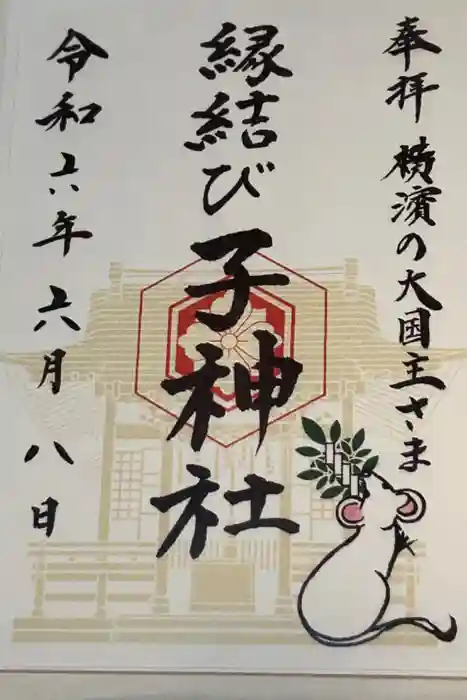 奉拝 横濱の大国主さま
縁結び子神社
令和六年六月八日